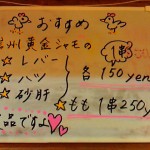 おすすめ
信州黄金シャモの
☆レバー
☆ハツ
☆砂肝
1串
各150yen
☆もも1串250
品ですよ♡♡